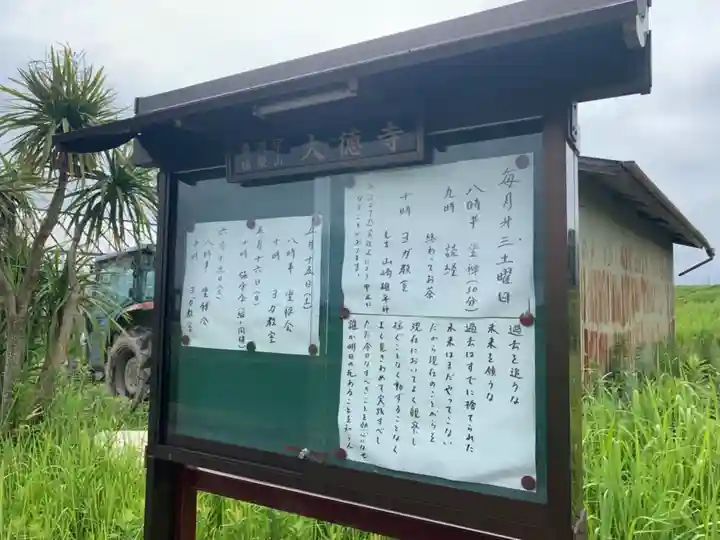 大徳寺
毎月第三土曜日
八時半 坐禅(50分)
九時 読経
終わってお茶
十時 ヨガ教室
過去を追うな
未来を願うな
過去はすでに捨てられた
未来はまだやってこない
だから現在のことがらを
現在においてよく観察し
揺ぐことなく動ずることなく
よく見きわめて実践すべし
ただ今日なすべきことを熱心になせ
誰か明日の死あることを知らん
五月十五日(土)
八時半 坐禅会
十時 ヨガ教室
五月十六日(日)
八時半 坐禅会
十時 ヨガ教室